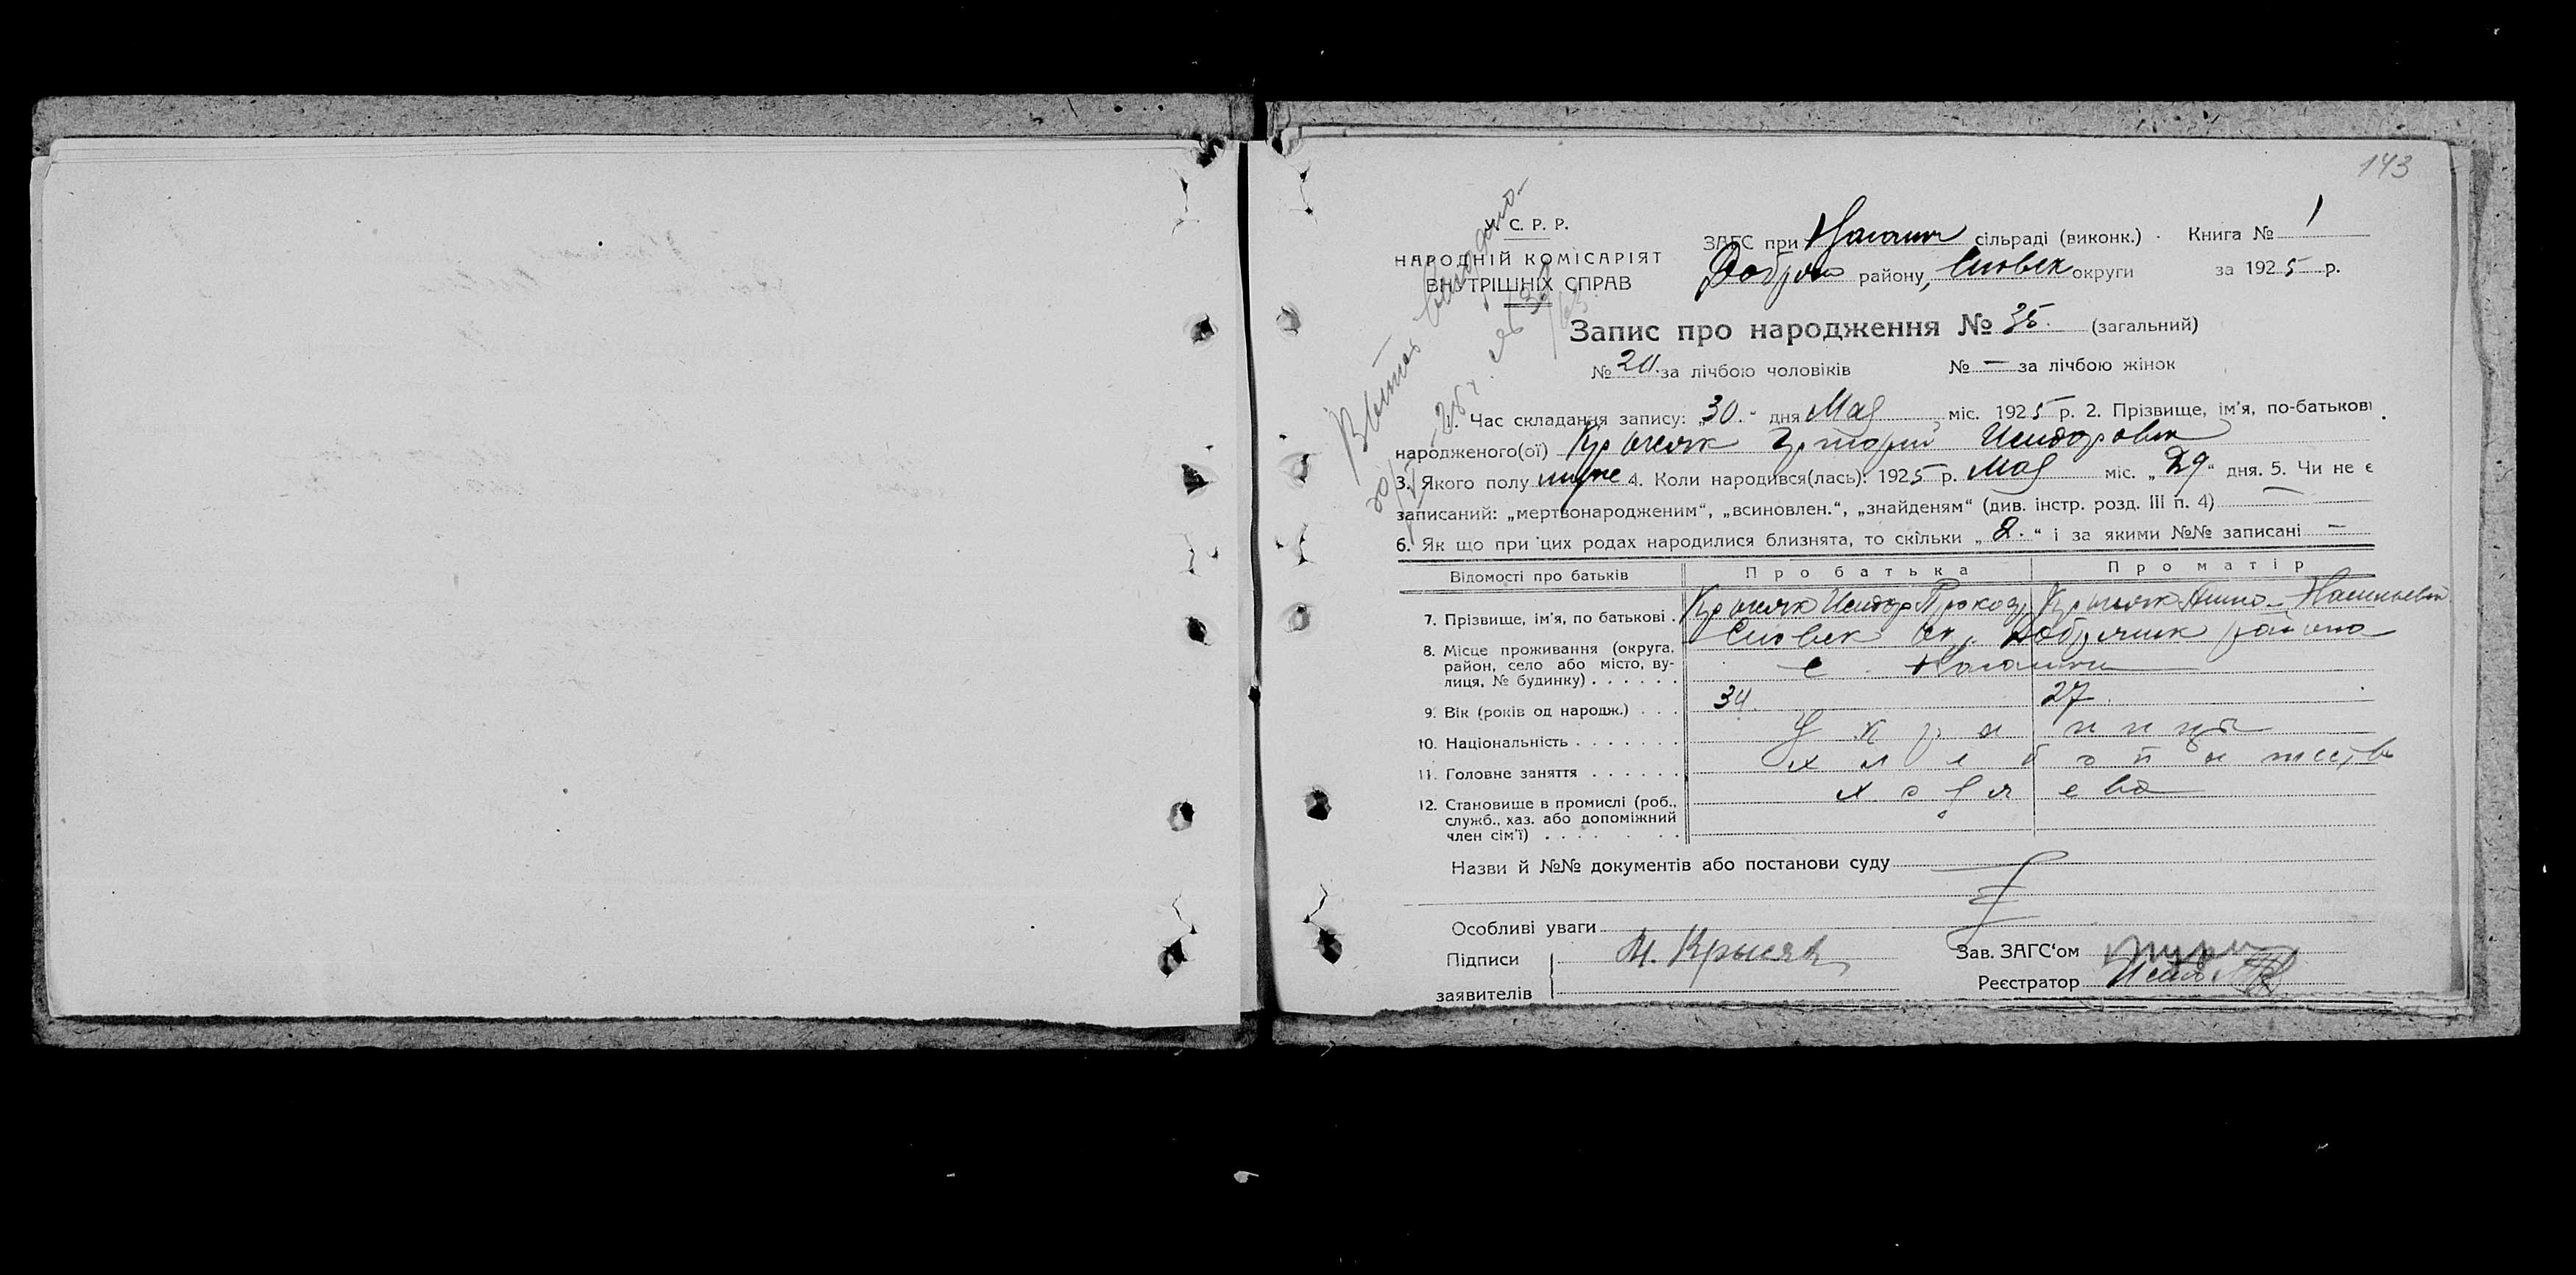 143
У. С. Р. Р.
НАРОДНІЙ КОМІСАРІЯТ
ВНУТРІШНІХ СПРАВ
ЗАГС при сільраді (виконк.) Книга № 1
району, округи за 1925 р.
Запис про народження № 35. (загальний)
№ за лічбою чоловіків № — за лічбою жінок
1. Час складання запису: „30.“ дня Мая міс. 1925 р. 2. Прізвище, ім'я, по-батькові
народженого(ої) Крысяк Григорий Исидорович
3. Якого полу муже 4. Коли народився(лась): 1925 р. Мая міс. „29“ дня. 5. Чи не є
записаний: „мертвонародженим“, „всиновлен.“, „знайденям“ (див. інстр. розд. III п. 4) —
6. Як що при цих родах народилися близнята, то скільки „ “ і за якими №№ записані —
Відомості про батьків Про батька Про матір
7. Прізвище, ім'я, по батькові . Крысяк Исидор Прокоф Крысяк Анна
8. Місце проживання (округа,
район, село або місто, ву-
лиця, № будинку) . . . . . .
района
с.
9. Вік (років од народж.) . . . 34. 27.
10. Національність . . . . . . . Украинцы
11. Головне заняття . . . . . . хлебопашеств
12. Становище в промислі (роб.,
служб., хаз. або допоміжний
член сім'ї) . . . . . . .
хозяева
Назви й №№ документів або постанови суду
Особливі уваги
Підписи
заявителів
И. Крысяк
Зав. ЗАГС'ом
Реєстратор